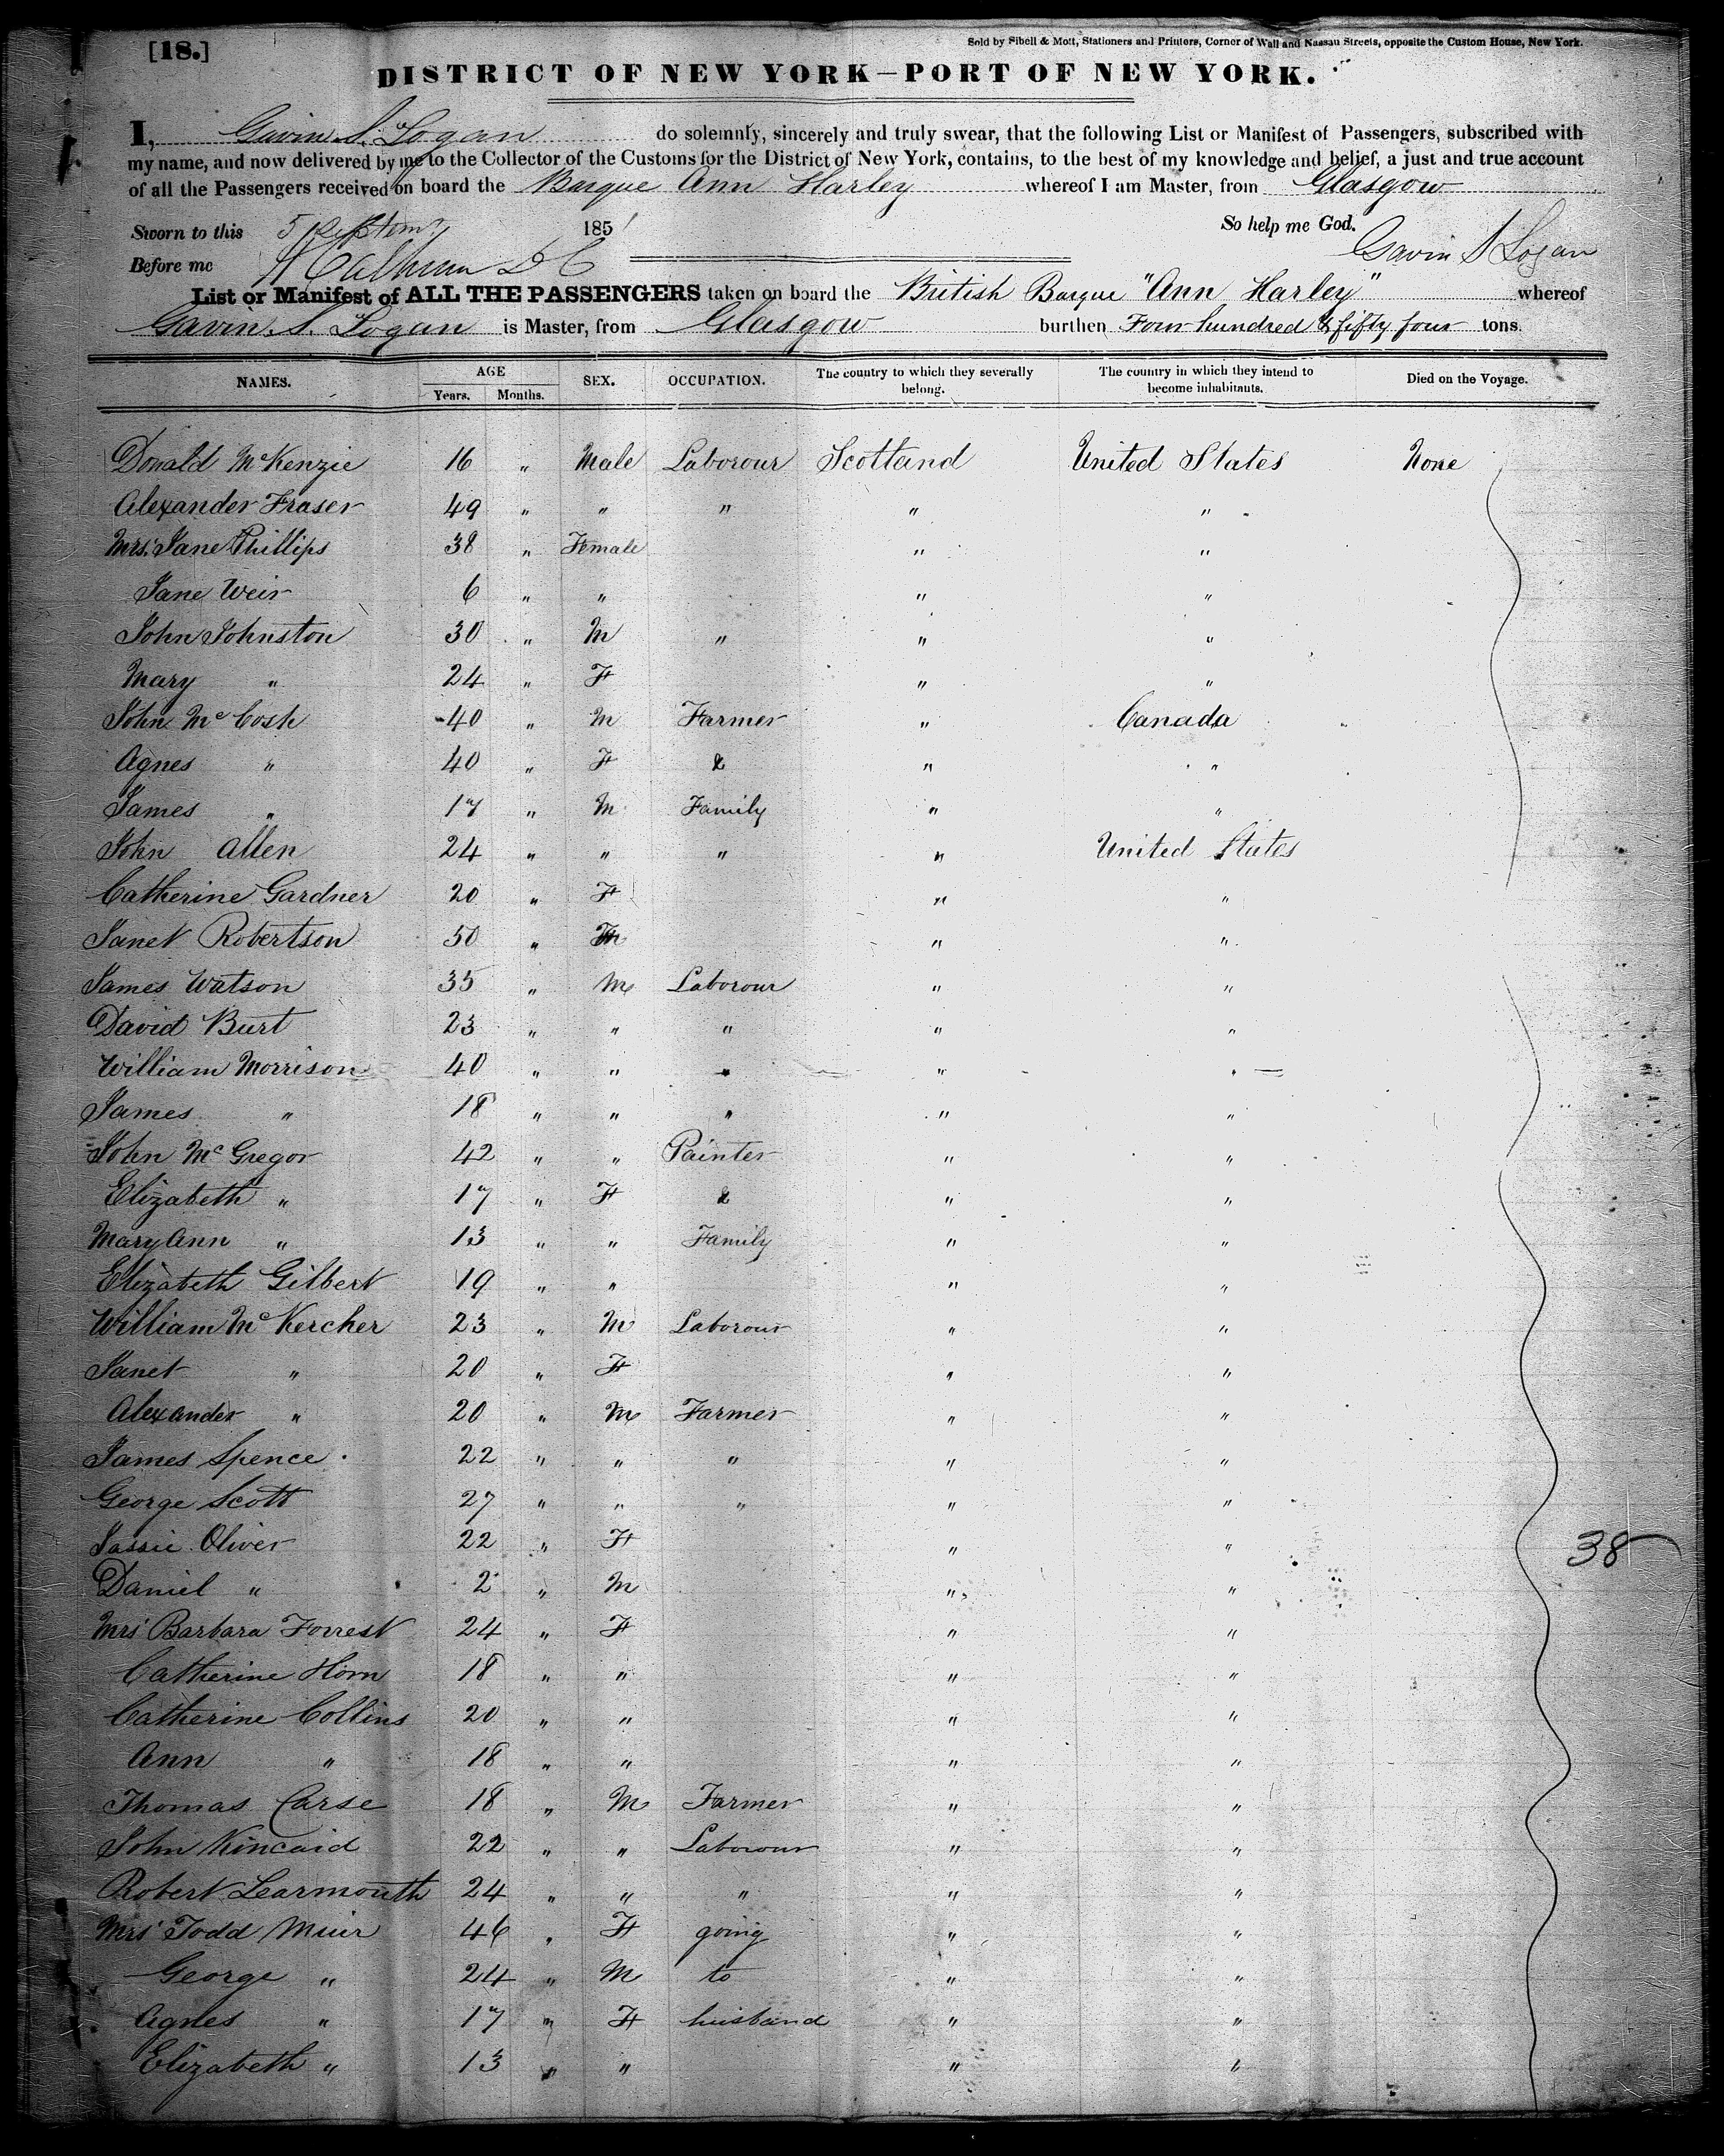 [18.]
Sold by Sibell & Mott, Stationers and Printers, Corner of Wall and Nassau Streets, opposite the Custom House, New York.
DISTRICT OF NEW YORK—PORT OF NEW YORK.
I, Gavin S. Logan do solemnly, sincerely and truly swear, that the following List or Manifest of Passengers, subscribed with
my name, and now delivered by me to the Collector of the Customs for the District of New York, contains, to the best of my knowledge and belief, a just and true account
of all the Passengers received on board the Barque Ann Harley whereof I am Master, from Glasgow
Sworn to this 5 Septemr 1851 So help me God.
Before me Gavin S Logan
List or Manifest of ALL THE PASSENGERS taken on board the British Barque "Ann Harley" whereof
Gavin S. Logan is Master, from Glasgow burthen Four hundred & fifty four tons.
NAMES. AGE Years. Months. SEX. OCCUPATION. The country to which they severally belong. The country in which they intend to become inhabitants. Died on the Voyage.
Donald McKenzie 16 " Male Laborour Scotland United States None
Alexander Fraser 49 " " " " "
Mrs. Jane Phillips 38 " Female " "
Jane Weir 6 " " " "
John Johnston 30 " M " " "
Mary " 24 " F " "
John McCosh 40 " M Farmer " Canada
Agnes " 40 " F & " "
James " 17 " M Family " "
John Allen 24 " " " " United States
Catherine Gardner 20 " F " "
Janet Robertson 50 " F " "
James Watson 35 " M Laborour " "
David Burt 23 " " " " "
William Morrison 40 " " " " "
James " 18 " " " " "
John McGregor 42 " " Painter " "
Elizabeth " 17 " F & " "
Mary Ann " 13 " " Family " "
Elizabeth Gilbert 19 " " " "
William McKercher 23 " M Laborour " "
Janet " 20 " F " "
Alexander " 20 " M Farmer " "
James Spence 22 " " " " "
George Scott 27 " " " " "
Jassie Oliver 22 " F " "
Daniel " 2 " M " "
38
Mrs Barbara Forrest 24 " F " "
Catherine Horn 18 " " " "
Catherine Collins 20 " " " "
Ann " 18 " " " "
Thomas Carse 18 " M Farmer " "
John Kincaid 22 " " Laborour " "
Robert Learmouth 24 " " " " "
Mrs Todd Muir 46 " F going " "
George " 24 " M to " "
Agnes " 17 " F husband " "
Elizabeth " 13 " " " "